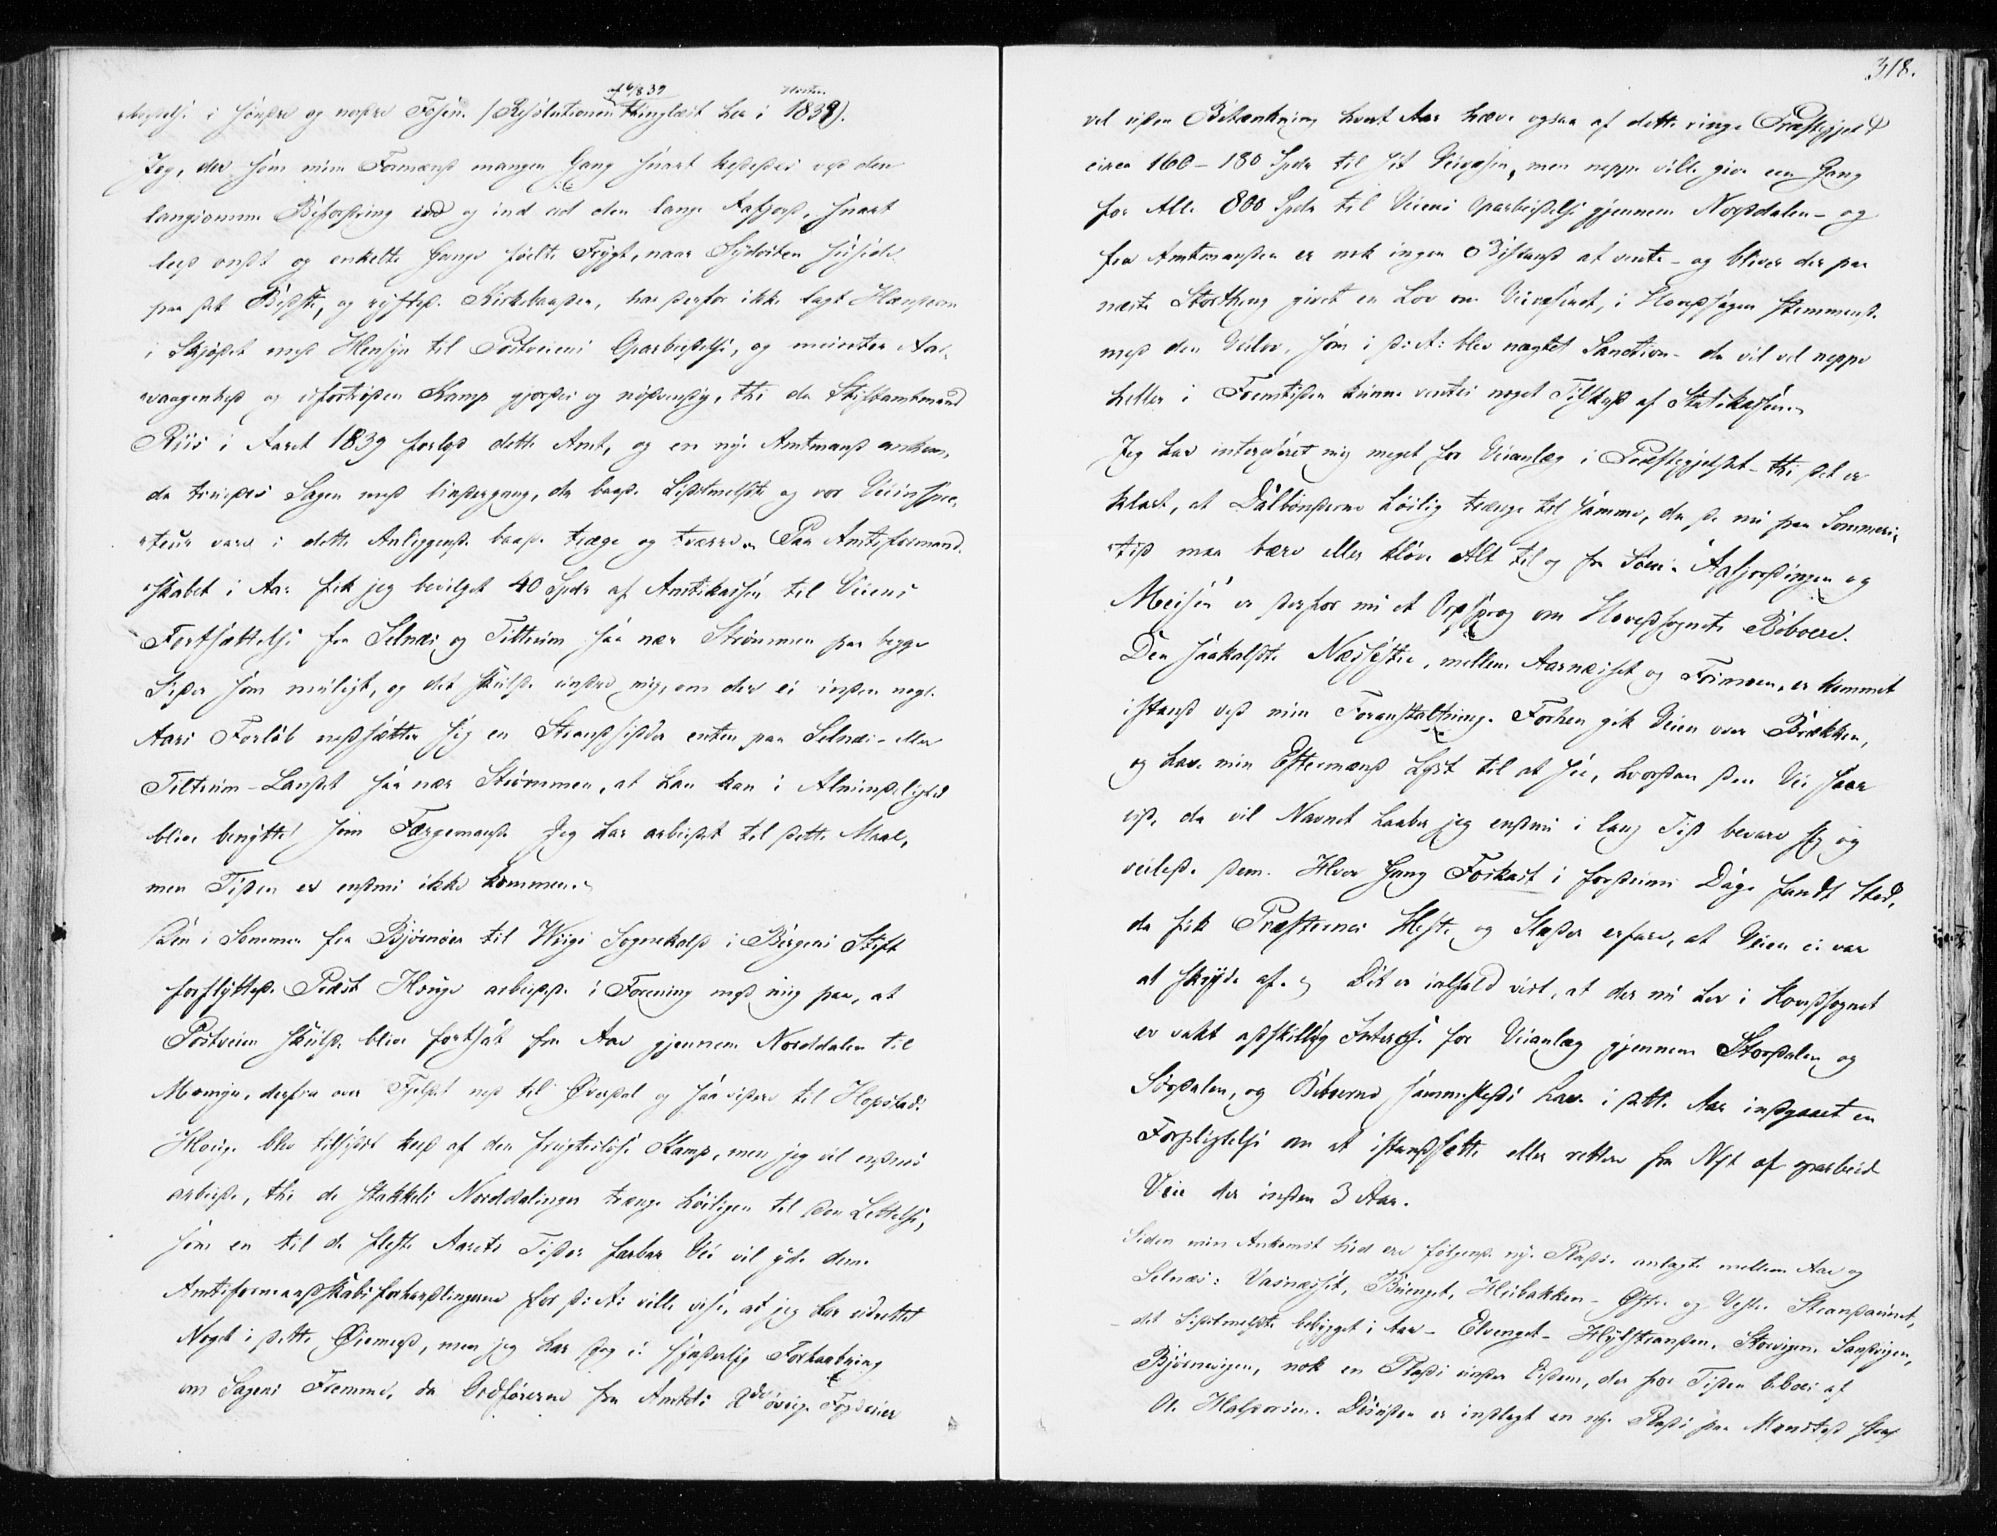 i søndre og nordre Fosen. (Resolutionen af 6/8 39 thinglæst her i Høsten 1839).
Jeg, der som mine Formænd mangen Gang snart kededes ved den
langsomme Befordring ind og ud den lange Aafjord, snart
leed ondt og enkelte Gange følte Frygt, naar Sydosten
paa sit Bedste, og Kirkebaaden, har derfor ikke lagt Hænderne
i Skjødet med Hensyn til Postveiens Oparbeidelse, og
vaagenhed og Kamp gjordes og nødvendig, thi da Stiftamtmand
Riis i Aaret 1839 forlod dette Amt, og en nye Amtmand ankom,
da truedes Sagen med Undergang, da baade Lehnsmændene og vor Veiinspec-
teur vare i dette Anliggende baade træge og tværre. Paa Amtsformand-
skabet i Aar fik jeg bevilget 40 Spdr af Amtskassen til Veiens
Fortsættelse fra Selnæs og Tiltrum saa nær Strømmen paa begge
Sider som muligt, og det skulde undre mig, om der ei inden nogle
Aars Forløb nedsætter sig en Strandsidder enten paa Selnæs- eller
Tiltrum-Landet saa nær Strømmen, at han kan i Almindelighed
blive benyttet som Færgemand. Jeg har arbeidet til dette Maal,
men Tiden er endnu ikke kommen.
Den i Sommer fra Bjørnøer til Wiigs Sognekald i Bergens Stift
forflyttede Præst Houge arbeidede i Forening med mig paa, at
Postveien skulde blive fortsat fra Aae gjennem Norddalen til
Momyr, derfra over Fjeldet ned til Øverdal og saa videre til Hopstad.
Houge blev tilsidst keed af den frugtesløse Kamp, men jeg vil endnu
arbeide, thi de stakkels Norddalinger trænge høiligen til den Lettelse,
som en til de fleste Aarets Tider farbar Vei vil yde dem.
Amtsformandskabsforhandlingerne for d: A: ville vise, at jeg har udrettet
Noget i dette Øiemed, men jeg har dog ei synderlig Forhaabning
om Sagens Fremme, da Ordførerne fra Amtets 2de øvrige Fogderier
318.
vel uden Betænkning hvert Aar hæve ogsaa af dette ringe Præstegjeld
circa 160-180 Spdr til sit Veivæsen, men neppe ville give een Gang
for Alle 800 Spdr til Veiens Oparbeidelse gjennem Norddalen- og
fra Amtmanden er nok ingen Bistand at vente- og bliver der paa
næste Storthing givet en Lov om Veivæsenet, i Hovedsagen stemmende
med den Veilov, som i d: A: blev nægtet Sanction- da vil vel neppe
heller i Fremtiden kunne ventes noget Tilskud af Statskassen.
Jeg har interesseret mig meget for Veianlæg i Præstegjeldet- thi det er
klart, at Dalbønderne høilig trænge til samme, da de nu paa Sommers-
tid maa bære eller kløve Alt til og fra Søen. Aafjordingen og
er derfor nu et Ordsprog om Hovedsognets Beboere.
Den saakaldte, mellem Aarnæset og, er kommet
istand ved min Foranstaltning. Forhen gik Veien over Brækken,
og have min Eftermænd Lyst til at see, hvordan den Vei saae
ud, da vil Navnet haaber jeg endnu i lang Tid bevare sig og
veilede dem. Hver Gang Forkast i fordums Dage fandt Sted,
da fik Præsternes Heste og Slæder erfare, at Veien ei var
at skryde af. Det er ialfald vist, at der nu her i Hovedsognet
er vakt adskillig Interesse for Veianlæg gjennem Stordalen og
Sørdalen, og Beboerne sammesteds have i dette Aar indgaaet en
Forpligtelse om at istandsætte eller rettere fra Nyt af oparbeide
Veie der inden 3 Aar.
Siden min Ankomst hid ere følgende nye Pladse anlagte mellem Aae og
Selnæs: Vasnæsset, Høibakken- Østre og Vestre
- det Lehnsmændene bebygget i Aar- Elvenget- Storvigen, Sandvigen,
Bjørnevigen, nok en Plads under, der for Tiden beboes af
O. Halvorsen. Desuden er indlagt en nye Plads paa